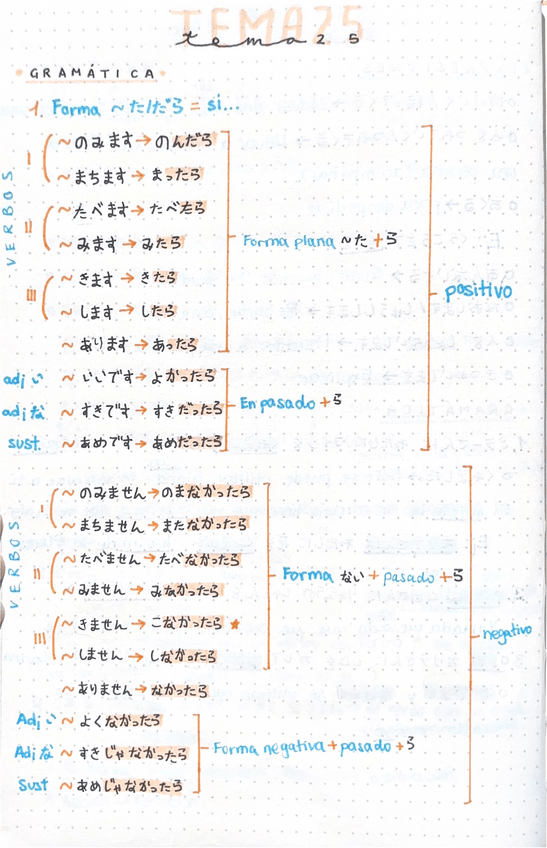 TEMA25
tema 25
GRAMÁTICA
1. Forma ~たら/だら = si...
VERBOS
I
~ のみます → のんだら
~ まちます → まったら
II
~ たべます → たべたら
~ みます → みたら
Forma plana ~た + ら
III
~ きます → きたら
~ します → したら
positivo
~ あります → あったら
adj い ~ いいです → よかったら
adj な ~ すきです → すきだったら
En pasado + ら
sust. ~ あめです → あめだったら
VERBOS
I
~ のみません → のまなかったら
~ まちません → またなかったら
II
~ たべません → たべなかったら
~ みません → みなかったら
Forma ない + pasado + ら
III
~ きません → こなかったら ★
~ しません → しなかったら
negativo
~ ありません → なかったら
Adj い ~ よくなかったら
Adj な ~ すきじゃなかったら
Forma negativa + pasado + ら
Sust ~ あめじゃなかったら